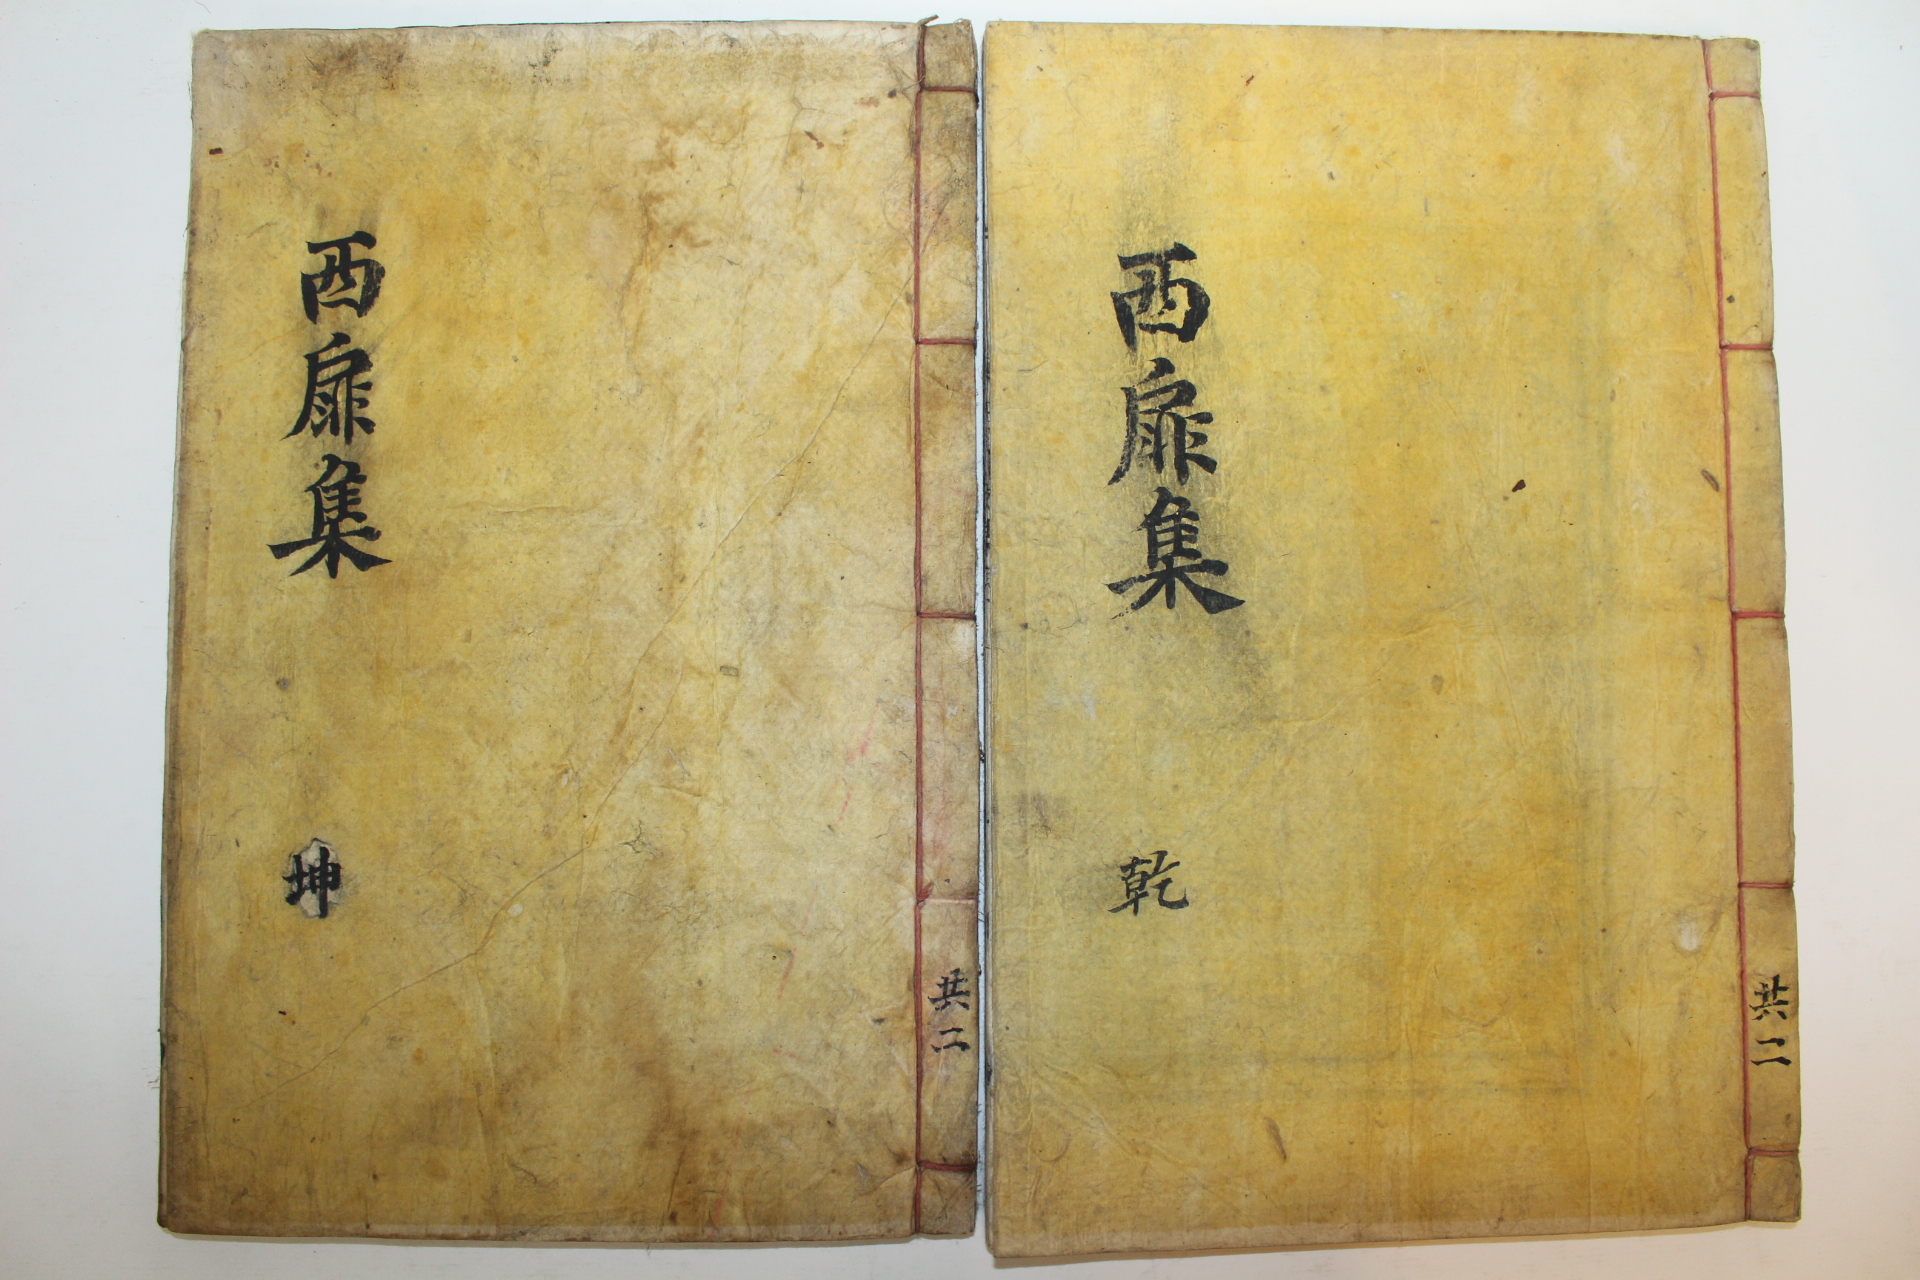 西扉集
乾
共二
西扉集
坤
共二